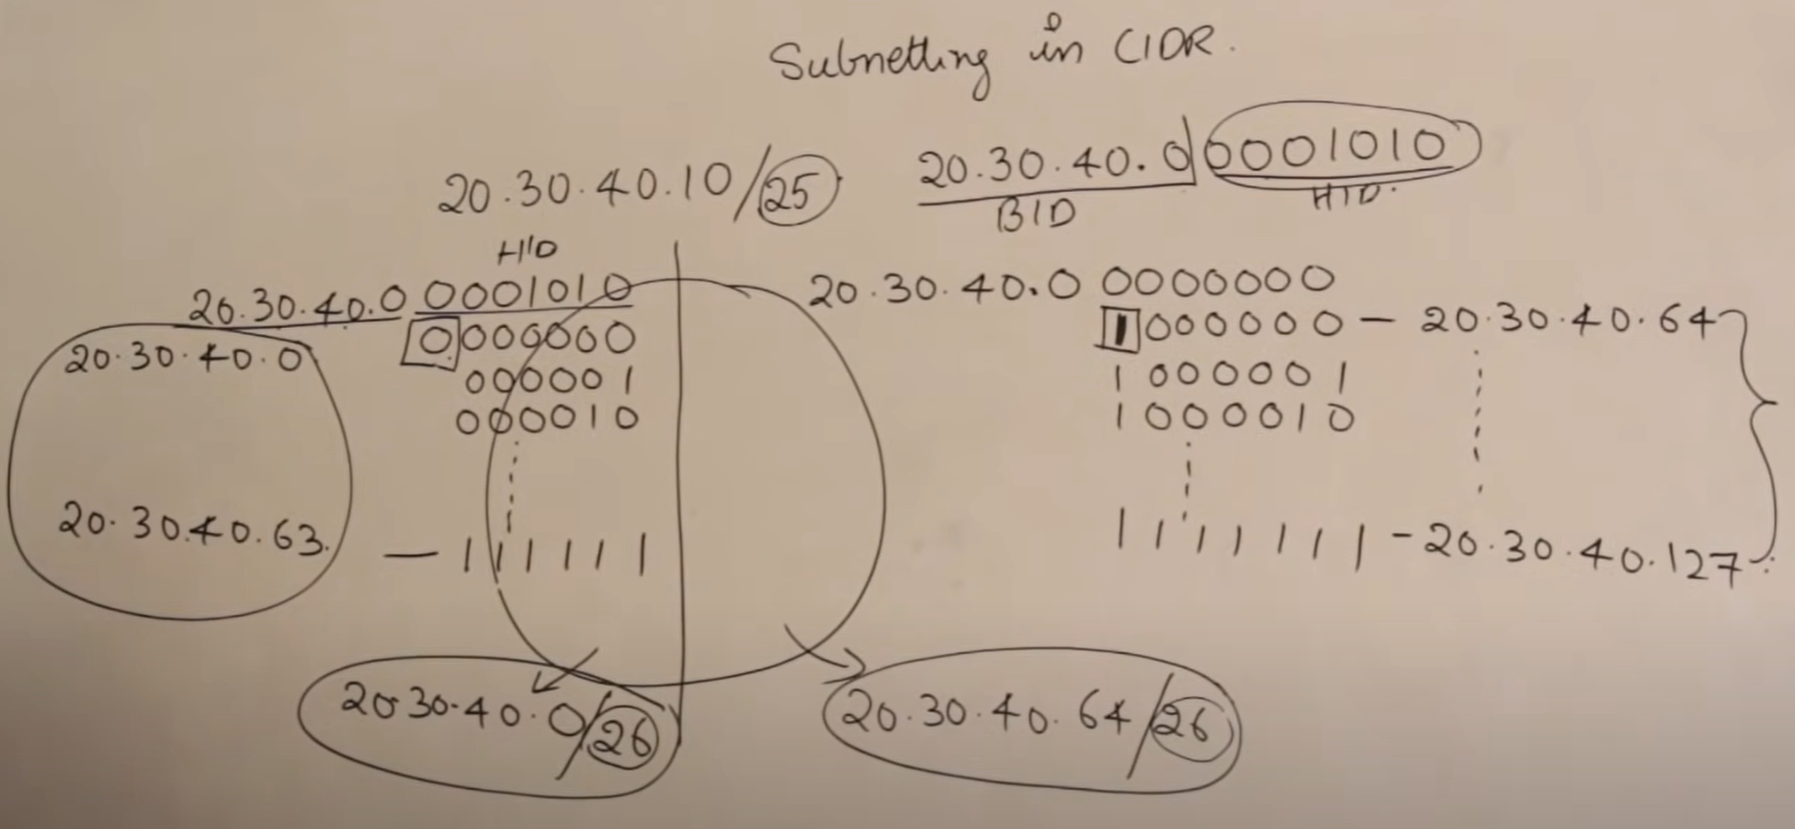 Subnetting in CIDR.
20.30.40.10/25
20.30.40.0 0001010
BID
HID.
HID
20.30.40.0 0001010
0000000
20.30.40.0
000001
000010
20.30.40.63. — 111111
20.30.40.0 0000000
1000000 — 20.30.40.64
1000001
1000010
1111111 - 20.30.40.127
20.30.40.0/26
20.30.40.64/26